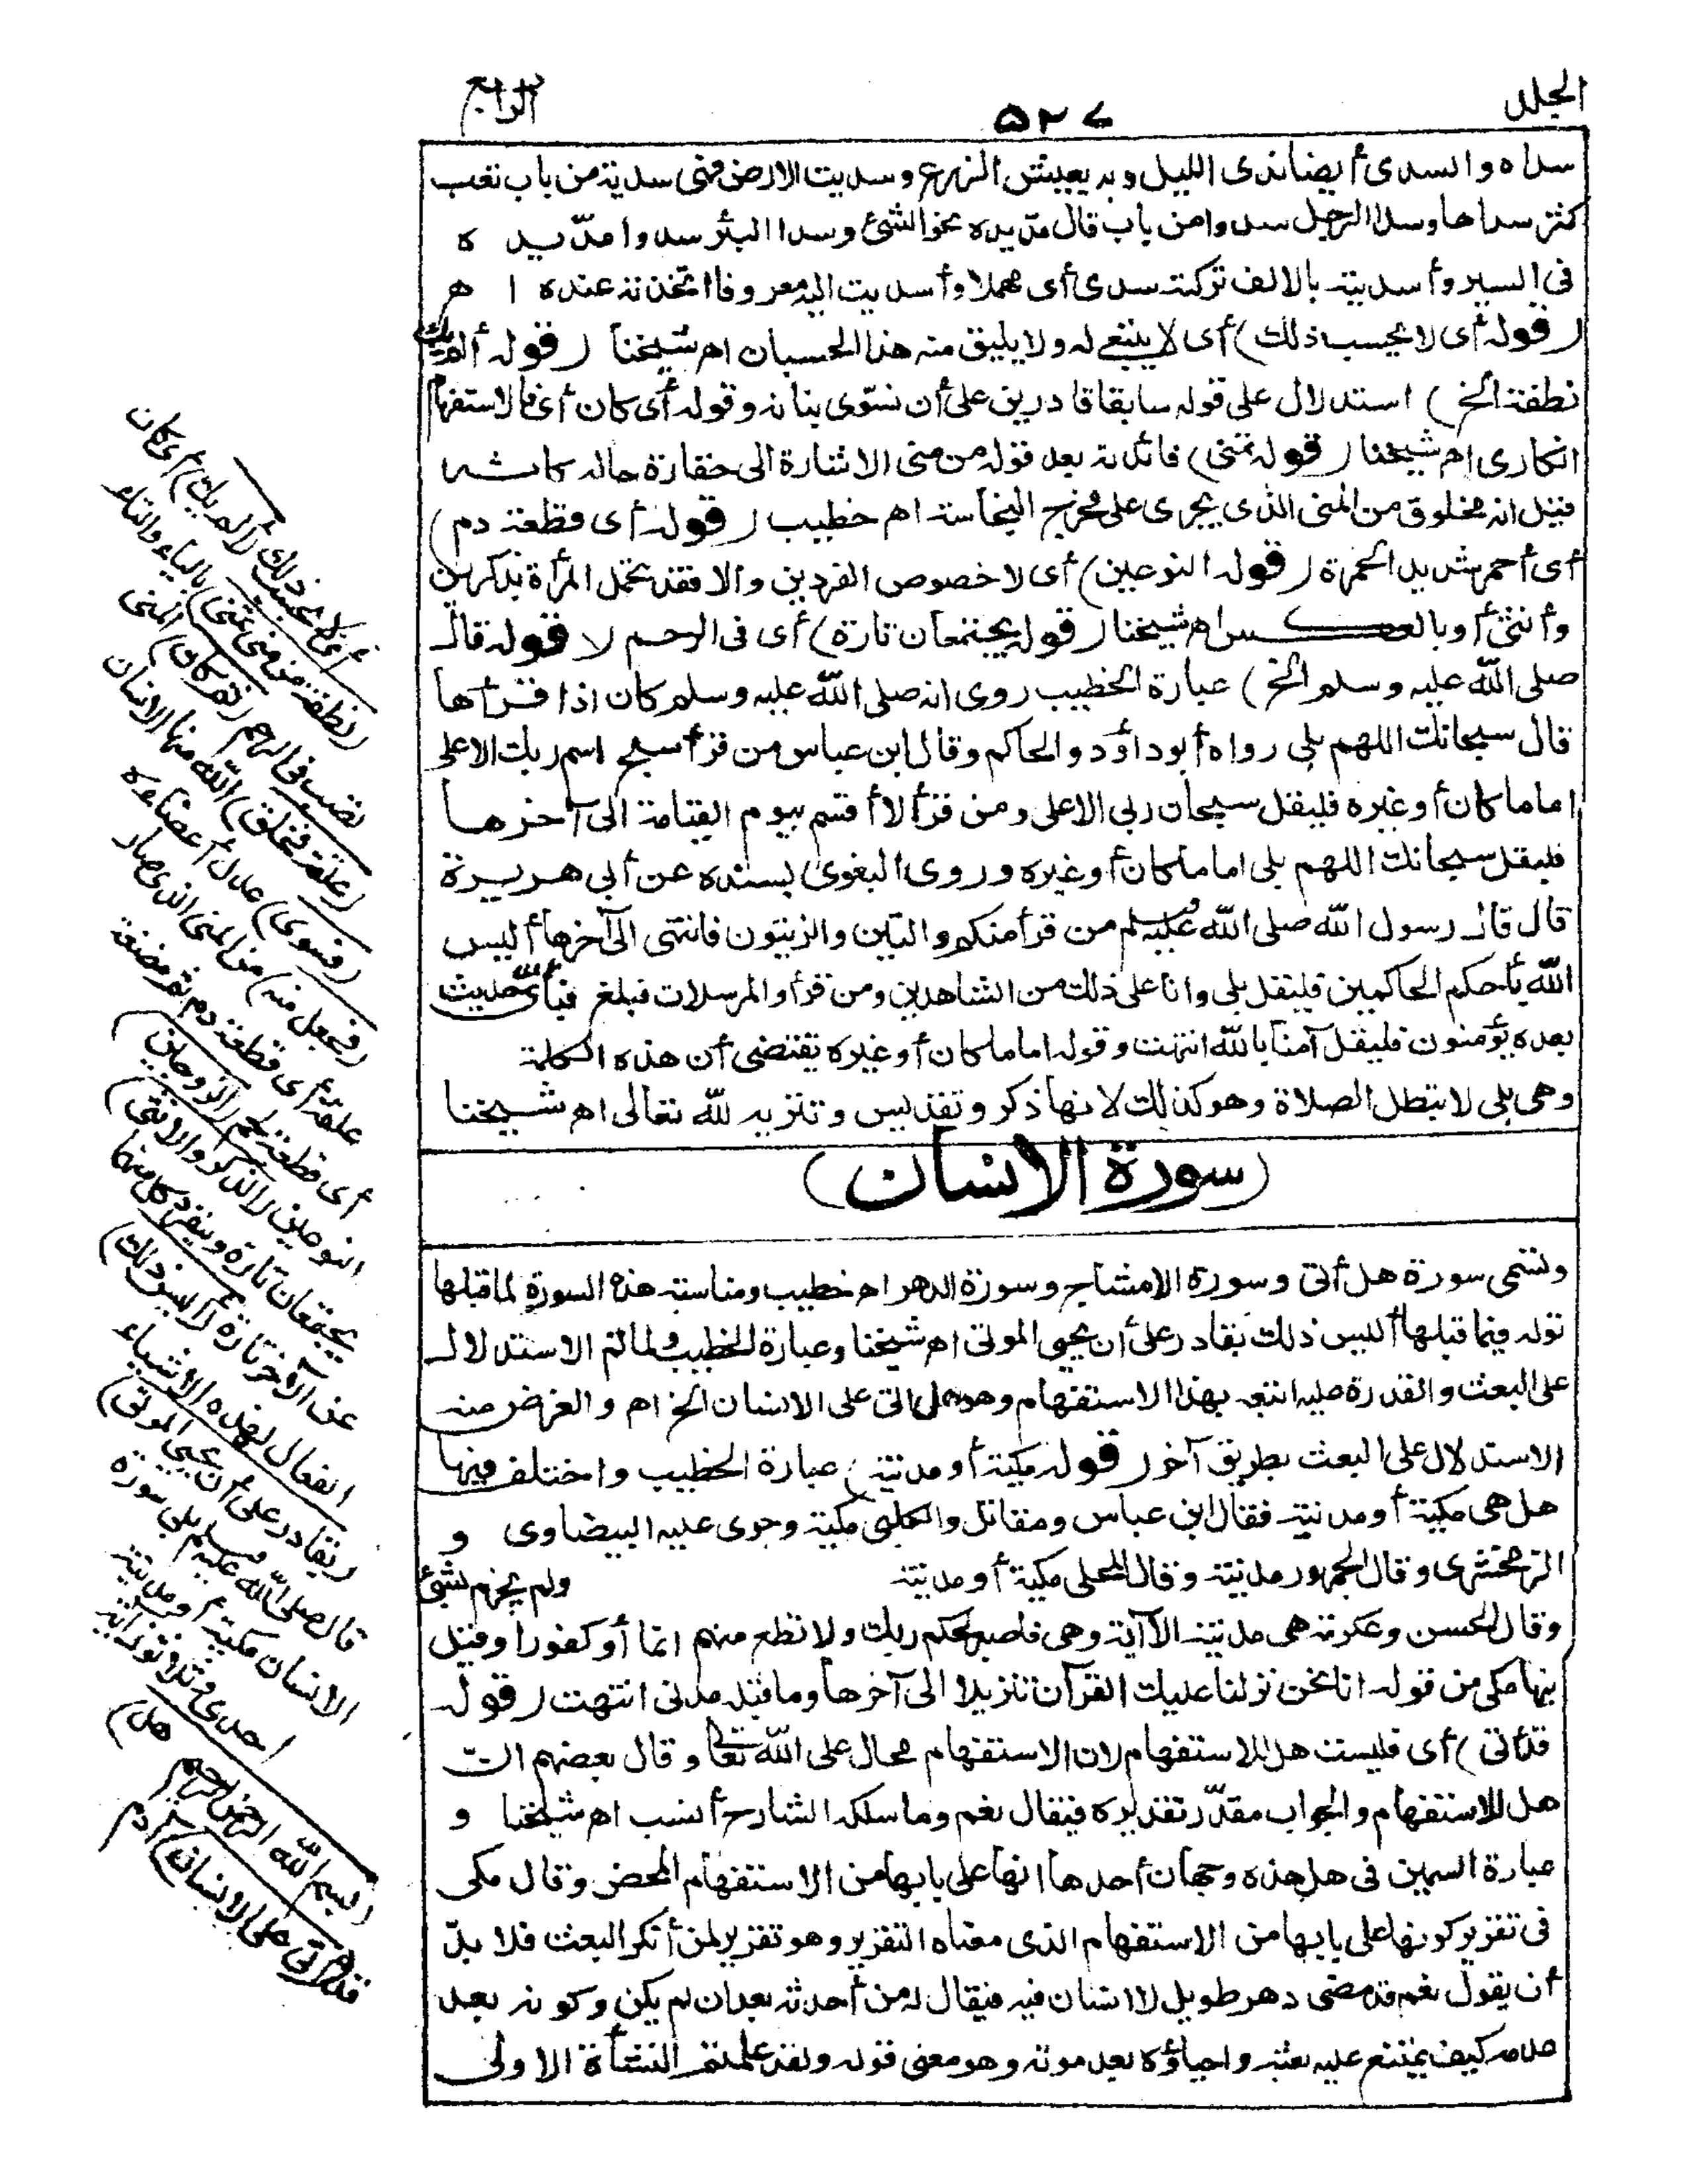 الجلد
٥٢٧
الرابع
سداه والسدى أيضا ندى الليل وبه يعيش الزرع وسديت الارض فهى سدية من باب تعب
كثر سداها وسدا الرجل سدوا من باب قال مدّ يده نحو الشئ وسدا البئر سدوا مدّ يده
فى السير وأسديته بالالف تركته سدى أى مهملا وأسديت اليه معروفا اتخذته عنده اهـ
(قوله أى لا يحسب ذلك) أى لا ينبغى له ولا يليق منه هذا الحسبان اهـ شيخنا (قوله ألم يك
نطفة الخ) استدلال على قوله سابقا قادرين على أن نسوّى بنانه وقوله أى كان أى فالاستفهام
انكارى اهـ شيخنا (قوله تمنى) فائدته بعد قوله من منى الاشارة الى حقارة حاله كانه
قيل انه مخلوق من المنى الذى يجرى على مخرج النجاسة اهـ خطيب (قوله أى قطعة دم)
أى أحمر شديد الحمرة (قوله النوعين) أى لا خصوص الفردين والا فقد تحمل المرأة بذكرين
وأنثى أو بالعكس اهـ شيخنا (قوله يجتمعان تارة) أى فى الرحم (قوله قال
صلى الله عليه وسلم الخ) عبارة الخطيب روى انه صلى الله عليه وسلم كان اذا قرأها
قال سبحانك اللهم بلى رواه أبو داود والحاكم وقال ابن عباس من قرأ سبح اسم ربك الاعلى
اماما كان أو غيره فليقل سبحان ربى الاعلى ومن قرأ لا أقسم بيوم القيامة الى آخرها
فليقل سبحانك اللهم بلى اماما كان أو غيره وروى البغوى بسنده عن أبى هريرة
قال قال رسول الله صلى الله عليه وسلم من قرأ منكم والتين والزيتون فانتهى الى آخرها أليس
الله بأحكم الحاكمين فليقل بلى وانا على ذلك من الشاهدين ومن قرأ والمرسلات فبلغ فبأى حديث
بعده يؤمنون فليقل آمنا بالله انتهت وقوله اماما كان أو غيره يقتضى أن هذه الكلمة
وهى بلى لا تبطل الصلاة وهو كذلك لانها ذكر وتقديس وتنزيه لله تعالى اهـ شيخنا
(سورة الانسان)
وتسمى سورة هل أتى وسورة الامشاج وسورة الدهر اهـ خطيب ومناسبة هذه السورة لما قبلها
قوله فيما قبلها أليس ذلك بقادر على أن يحيى الموتى اهـ شيخنا وعبارة الخطيب ولما تم الاستدلال
على البعث والقدرة عليه اتبعه بهذا الاستفهام وهو هل اتى على الانسان الخ اهـ والغرض منه
الاستدلال على البعث بطريق آخر (قوله مكية أو مدنية) عبارة الخطيب واختلف فيها
هل هى مكية أو مدنية فقال ابن عباس ومقاتل والكلبى مكية وجرى عليه البيضاوى و
الزمخشرى وقال الجمهور مدنية وقال المحلى مكية أو مدنية ولم يجزم بشئ
وقال الحسن وعكرمة هى مدنية الا آية وهى فاصبر لحكم ربك ولا تطع منهم اثما أو كفورا وقيل
فيها مكى من قوله انا نحن نزلنا عليك القرآن تنزيلا الى آخرها وما قبله مدنى انتهت (قوله
قد أتى) أى فليست هل للاستفهام لان الاستفهام محال على الله تعالى وقال بعضهم ان
هل للاستفهام والجواب مقدّر تقديره فيقال نعم وما سلكه الشارح أنسب اهـ شيخنا و
عبارة السمين فى هل هذه وجهان أحدها انها على بابها من الاستفهام المحض وقال مكى
فى تقرير كونها على بابها من الاستفهام الذى معناه التقرير وهو تقرير لمن أنكر البعث فلا بدّ
أن يقول نعم قد مضى دهر طويل لا انسان فيه فيقال له من أحدثه بعد ان لم يكن وكونه بعد
عدمه كيف يمتنع عليه بعثه واحياؤه بعد موته وهو معنى قوله ولقد علمتم النشأة الاولى
أى لا يحسب ذلك (ألم يك) أى كان
(نطفة من منى تمنى) بالياء والتاء
تصب فى الرحم (ثم كان) المنى
(علقة فخلق) الله منها الانسان
(فسوى) عدل أعضاءه
(فجعل منه) من المنى الذى صار
علقة أى قطعة دم ثم مضغة
أى قطعة لحم (الزوجين)
النوعين (الذكر والانثى)
يجتمعان تارة وينفرد كل منهما
عن الآخر تارة (أليس ذلك)
الفعال لهذه الاشياء
(بقادر على أن يحيى الموتى)
قال صلى الله عليه وسلم بلى سورة
الانسان مكية أو مدنية
احدى وثلاثون آية
(بسم الله الرحمن الرحيم هل)
قد (أتى على الانسان) آدم